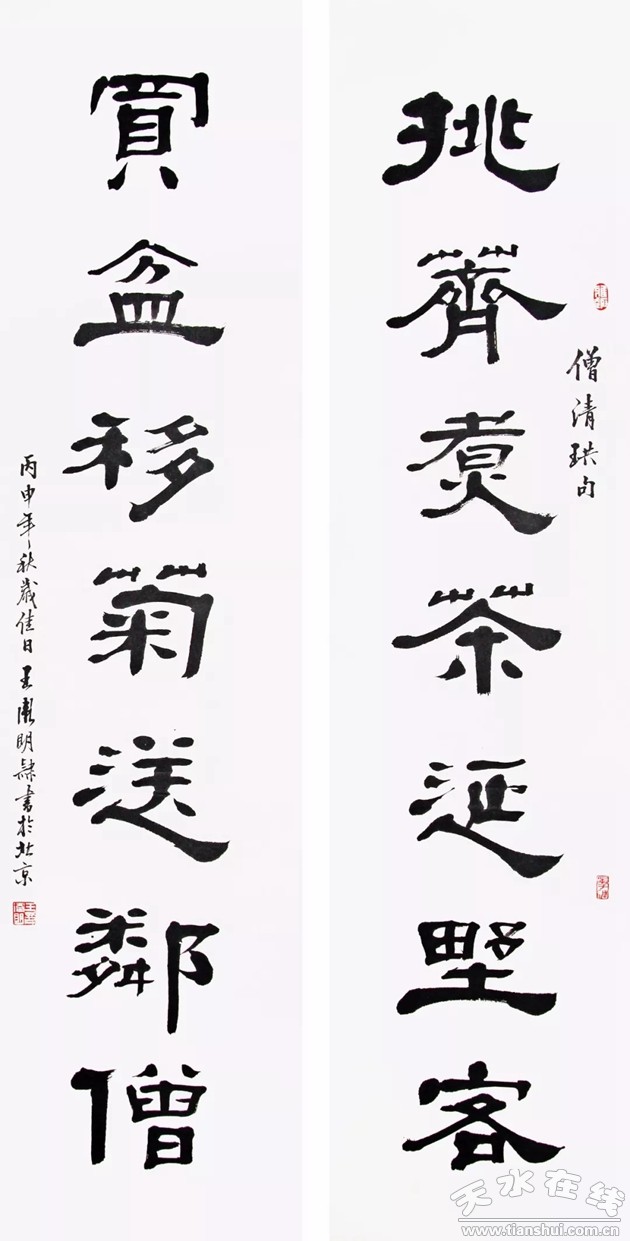 僧清珙句
挑薺煮茶延野客
買盆移菊送鄰僧
丙申年秋歲佳日王明隸書於北京
天水在线
www.tianshui.com.cn